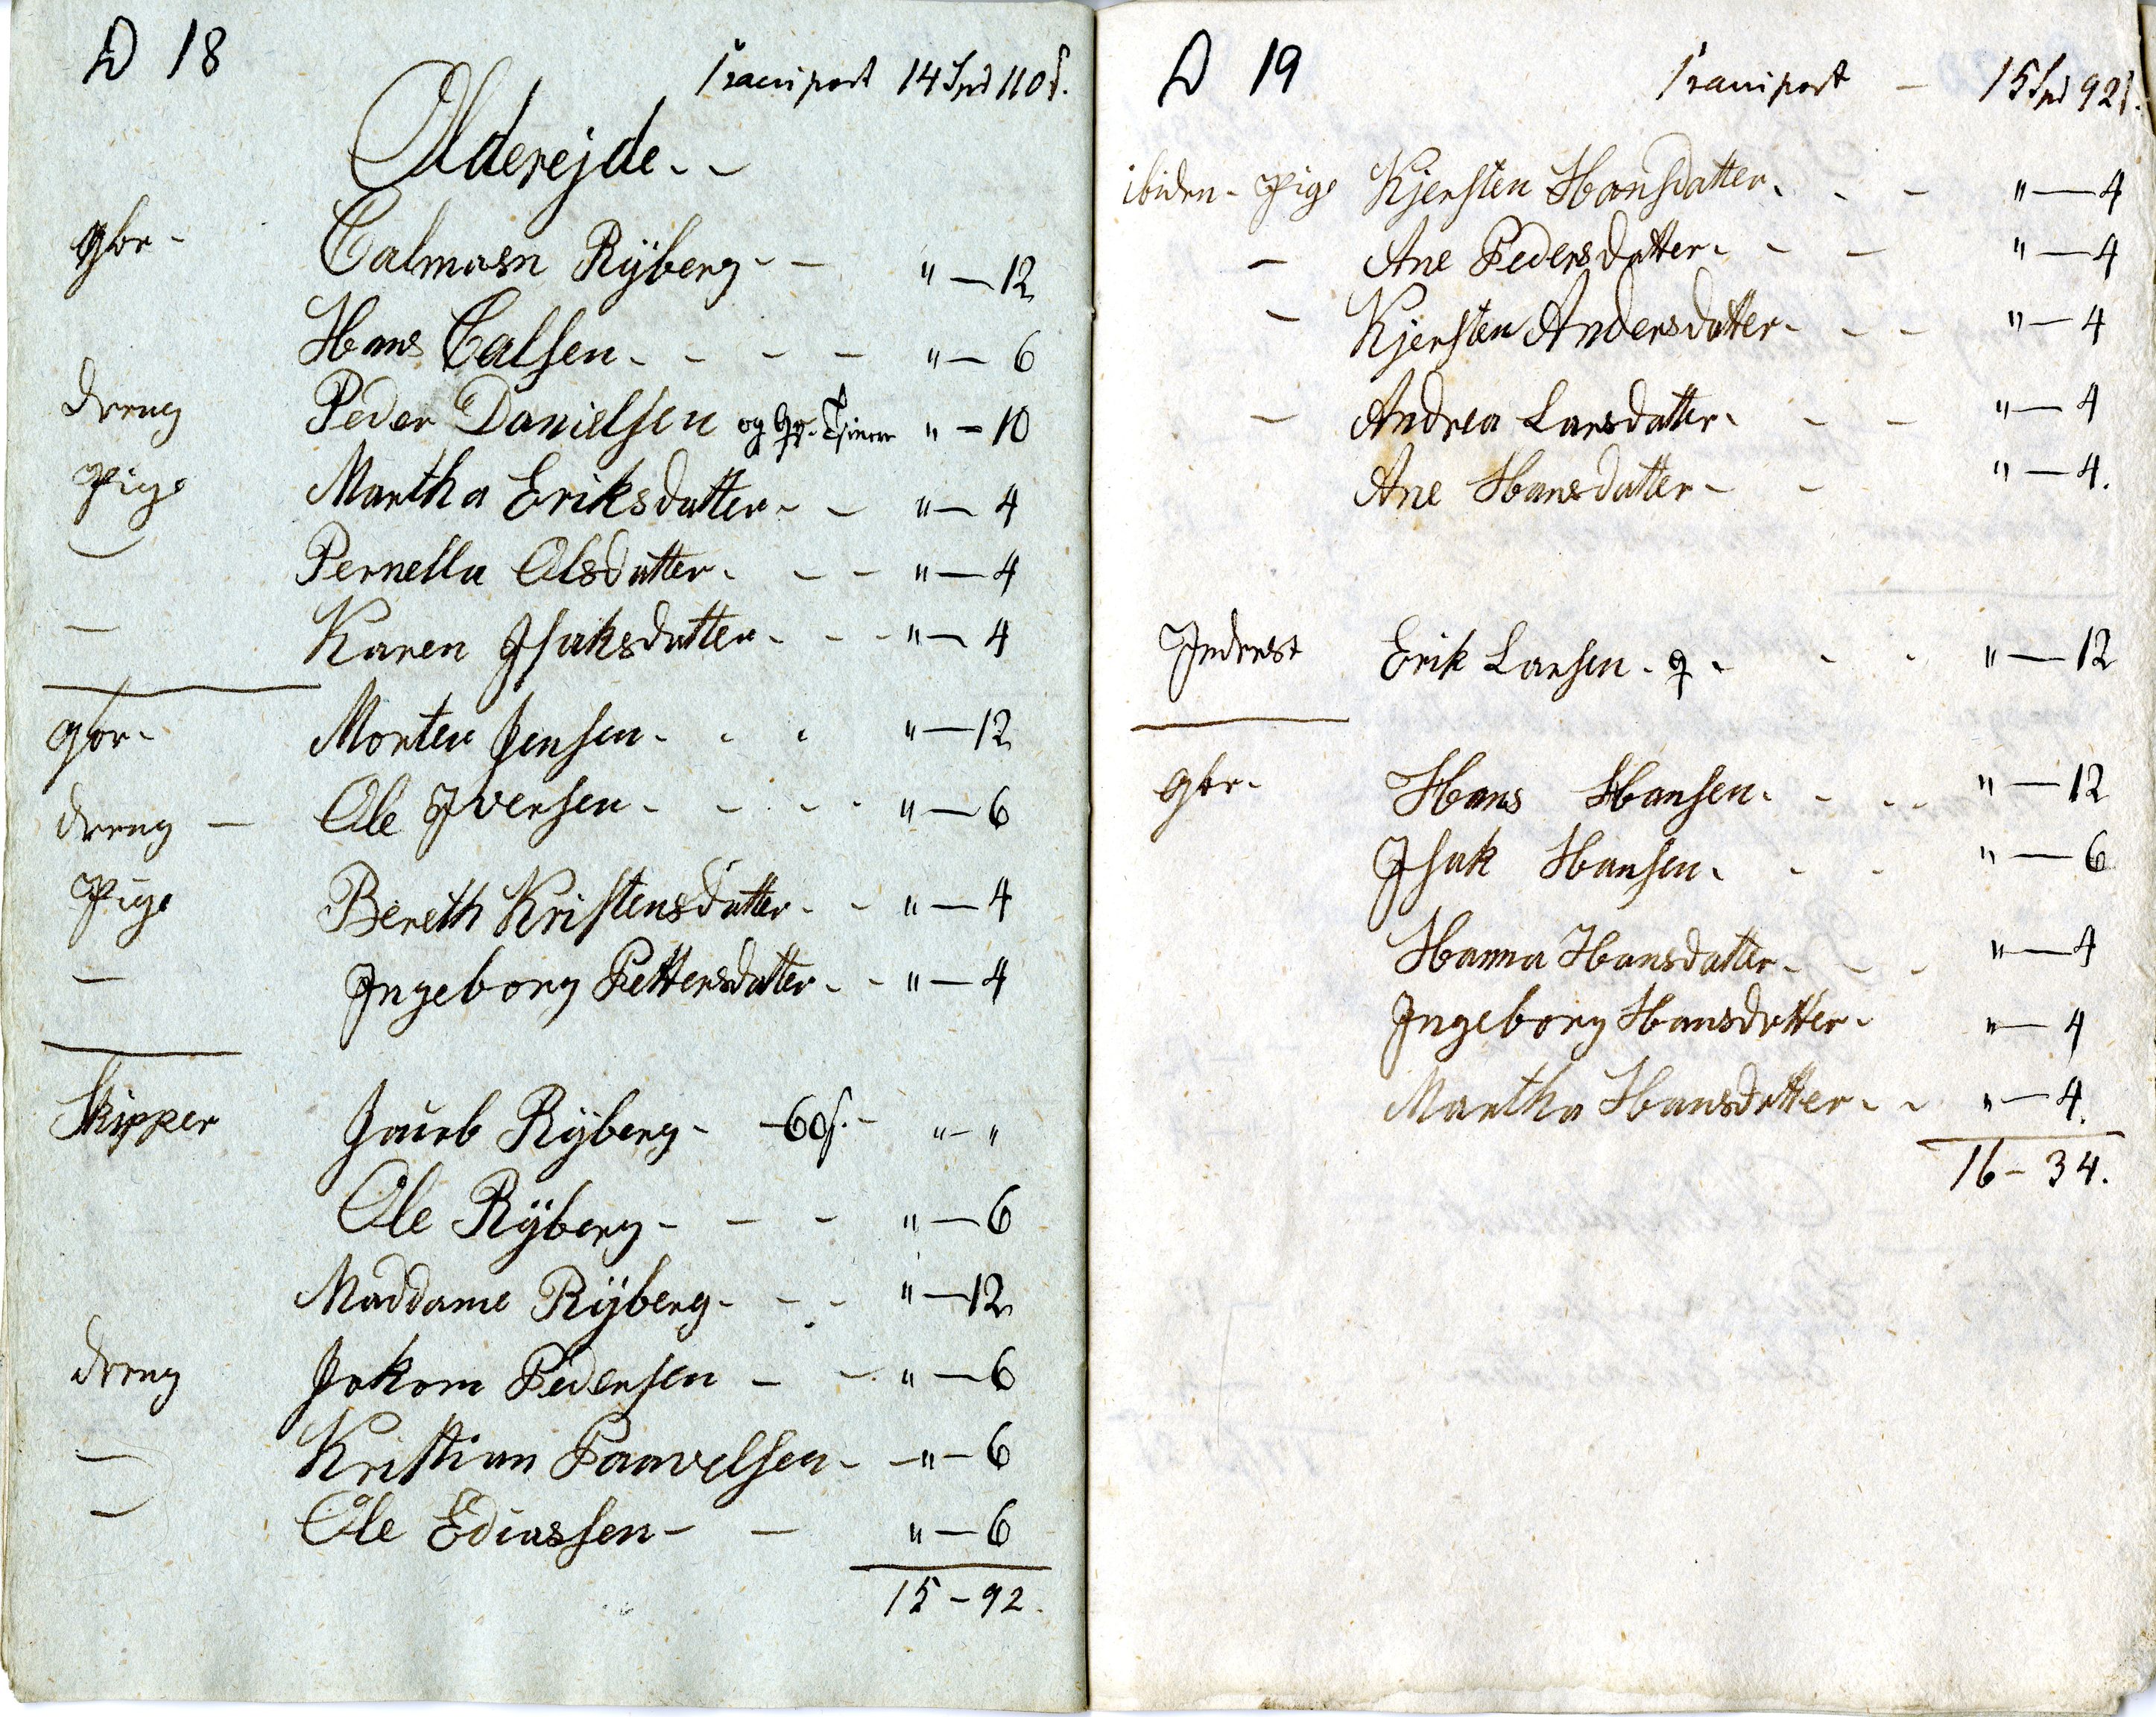 D 18
Transport 14 Spd 110 ſ.
Olderejde - -
gbr - Calmasn Rÿberg - - " — 12
Hans Calsen - - - - " — 6
dreng Peder Danielsen og Tjener " — 10
Pige Martha Eriksdatter - - " — 4
— Pernella Olsdatter - - - " — 4
— Karen Isaksdatter - - - " — 4
gbr - Morten Jensen - - - " — 12
dreng — Ole Iversen - - - - " — 6
Pige Bereth Kristensdatter - - " — 4
— Ingeborg Pettersdatter - - " — 4
Skipper Jacob Rÿberg - - 60 ſ. - " - "
Ole Rÿberg - - - " — 6
Maddame Rÿberg - - - " — 12
dreng Jokom Pedersen - - " — 6
— Kristian Paavelsen - - " - 6
— Ole Ediassen - - " — 6
15 - 92.
D 19
Transport - 15 Spd 92 ſ.
ibiden - Pige Kjersten Hansdatter - - - " — 4
— Ane Pedersdatter - - - " — 4
— Kjersten Andersdatter - - - " — 4
— Andrea Larsdatter - - - " — 4
Ane Hansdatter - - " — 4.
Inderst Erik Larsen - q - - - " — 12
gbr - Hans Hansen - - - - " — 12
Isak Hansen - - - " — 6
Hanna Hansdatter - - - " — 4
Ingeborg Hansdatter - " — 4
Martha Hansdatter - - " — 4.
16 - 34.